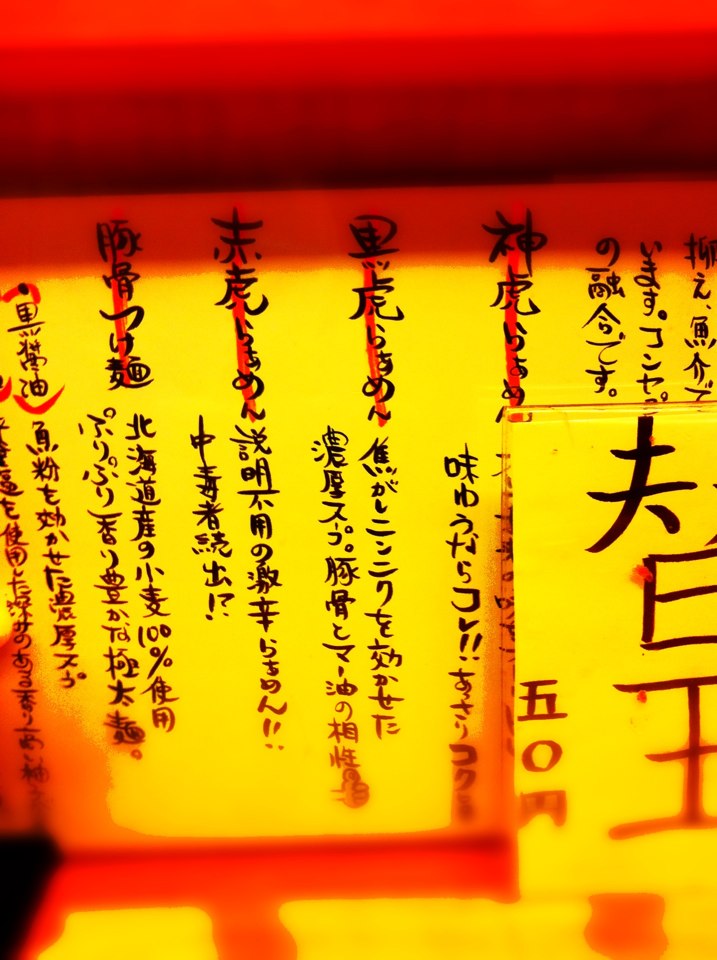 抑え、魚介で
います。コンセプ
の融合です。
替
玉
五〇円
神虎らぁめん
味わうならコレ!!あっさりコク
黒虎らぁめん
焦がしニンニクを効かせた
濃厚スープ。豚骨とマー油の相性
赤虎らぁめん
説明不用の激辛らぁめん!!
中毒者続出!?
豚骨つけ麺
北海道産の小麦100%使用
ぷりっぷり香り豊かな極太麺。
・黒醤油
魚粉を効かせた濃厚スープ
を使用した深みのある香り